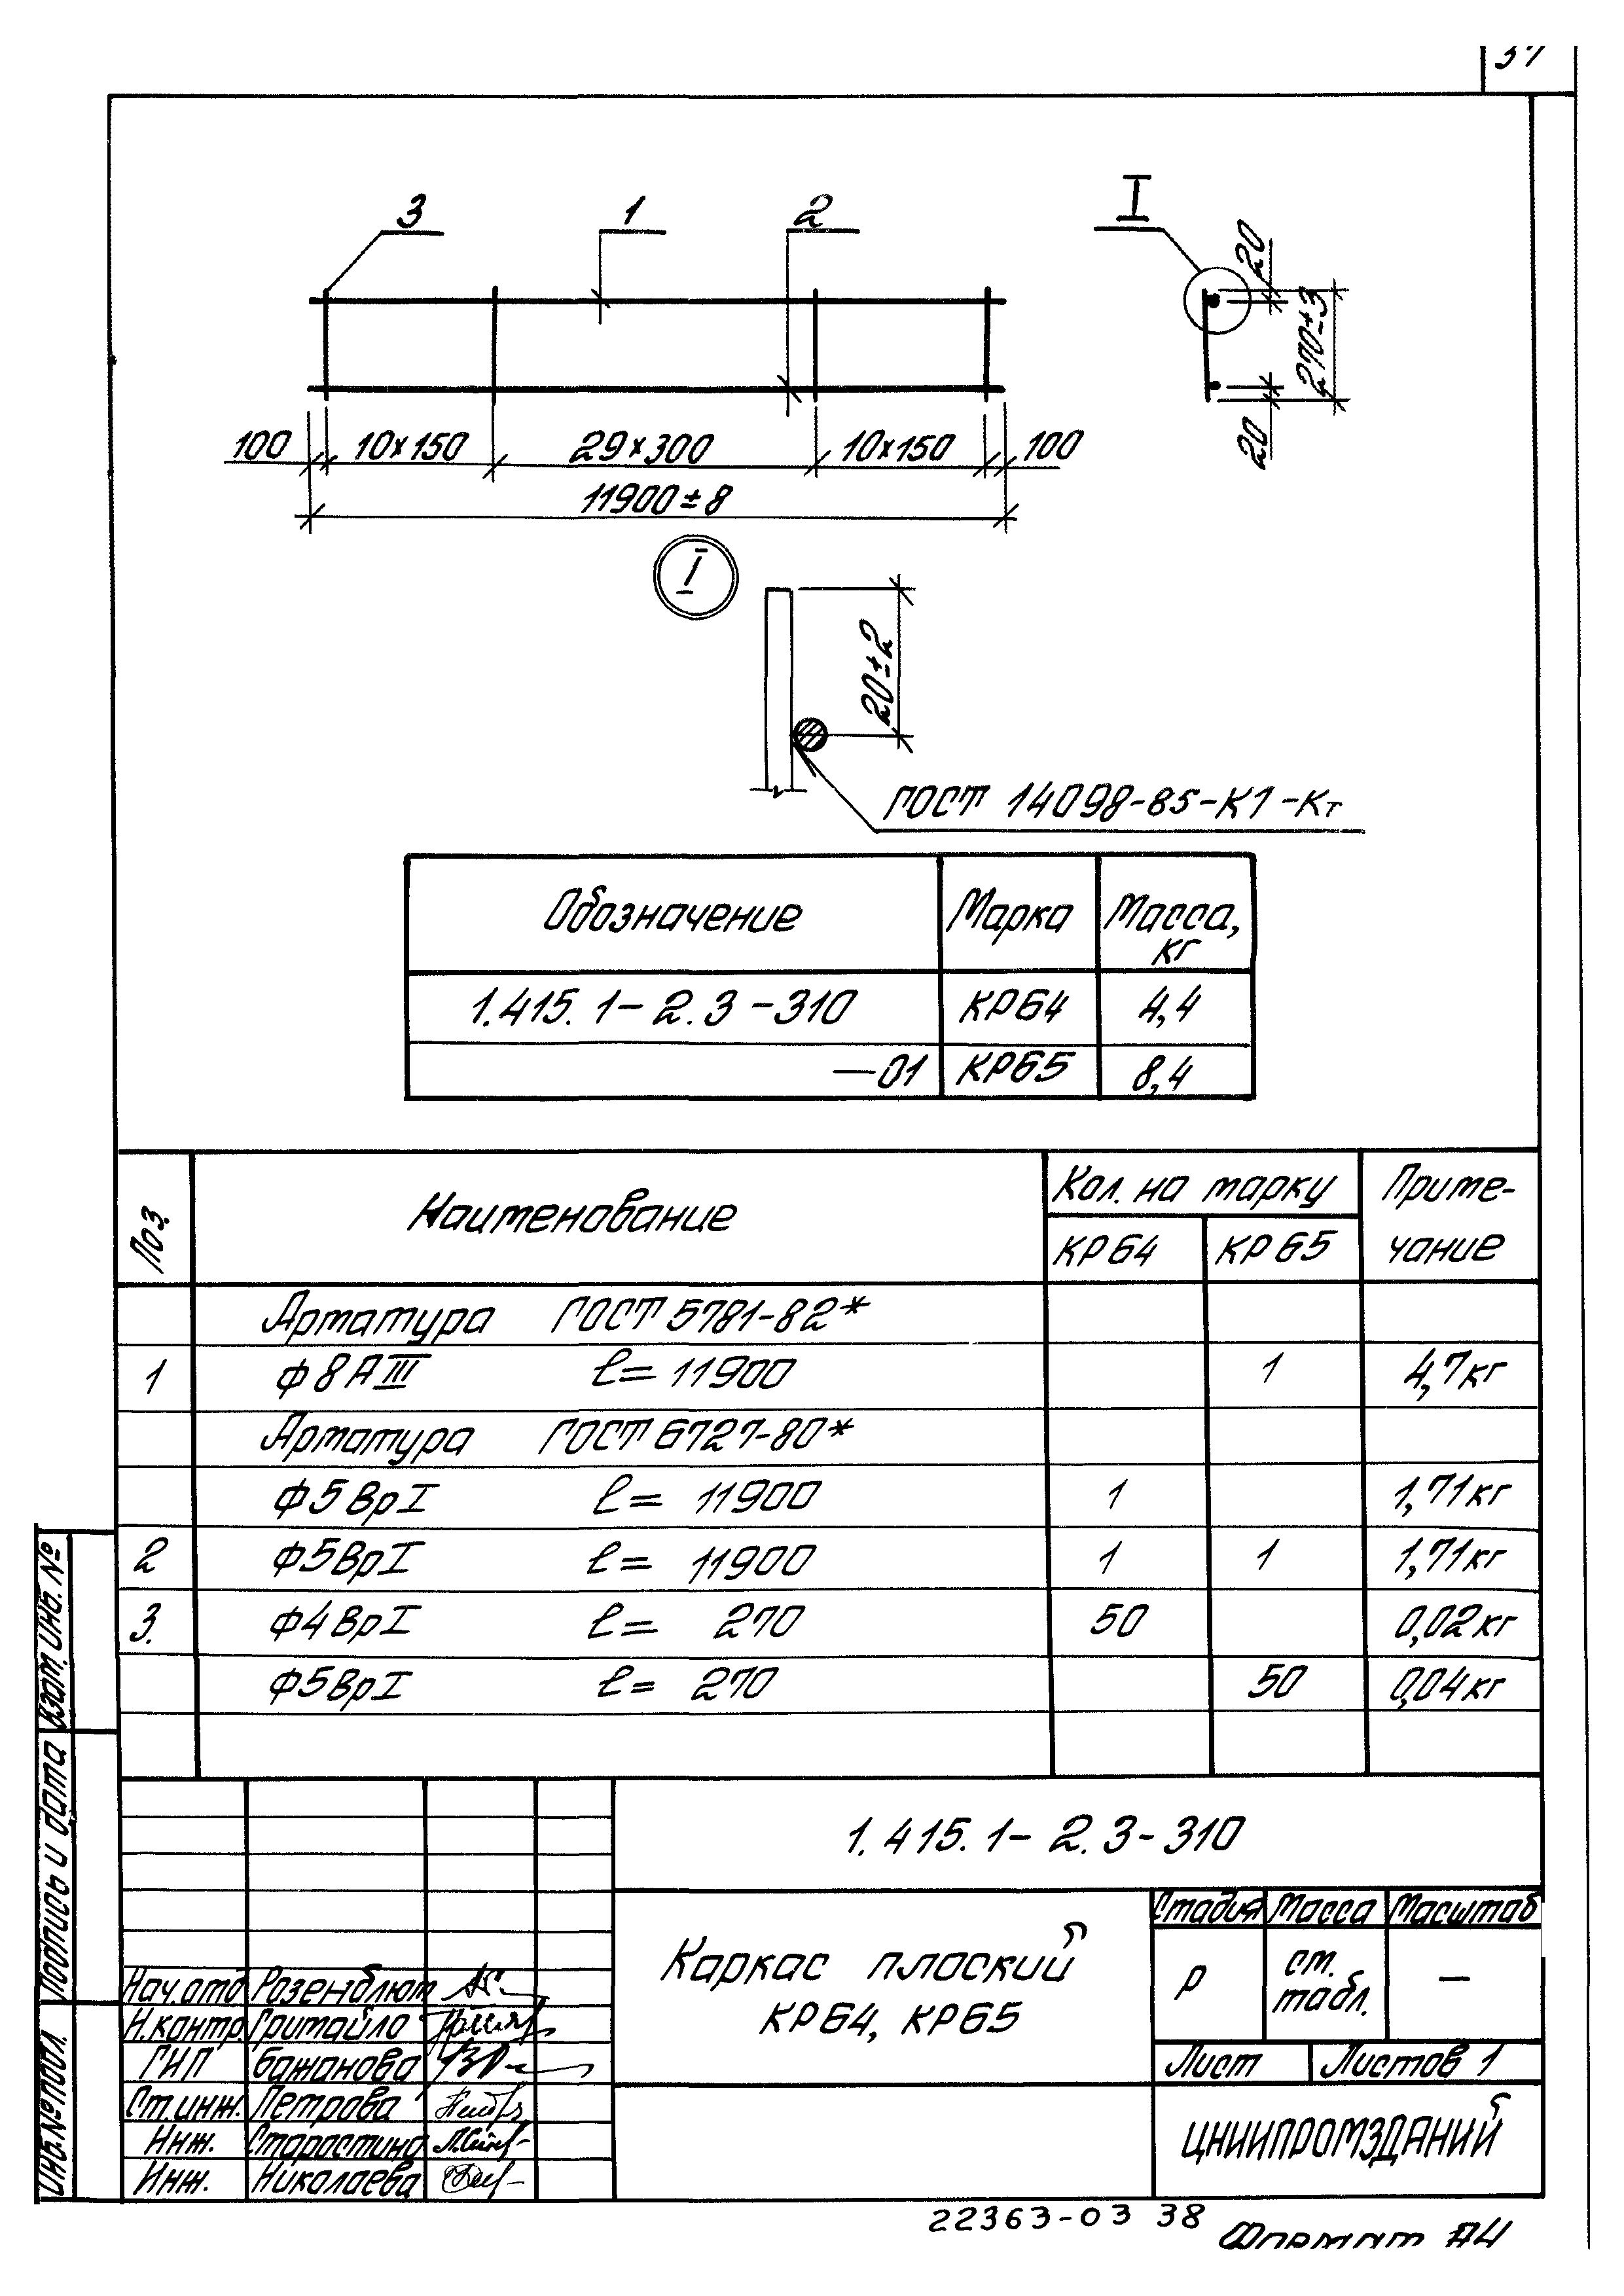 37
3 1 2 I
20
270±3
20
100 10×150 29×300 10×150 100
11900±8
I
20±2
ГОСТ 14098-85-К1-Кт
Обозначение Марка Масса, кг
1.415.1-2.3-310 КР64 4,4
—01 КР65 8,4
Поз. Наименование Кол. на марку Приме-
КР64 КР65 чание
Арматура ГОСТ 5781-82*
1 Ф8АIII ℓ= 11900 1 4,7кг
Арматура ГОСТ 6727-80*
Ф5ВрI ℓ= 11900 1 1,71кг
2 Ф5ВрI ℓ= 11900 1 1 1,71кг
3. Ф4ВрI ℓ= 270 50 0,02кг
Ф5ВрI ℓ= 270 50 0,04кг
Взам. инв. №
Подпись и дата
Инв.№ подл.
1.415.1-2.3-310
Каркас плоский
КР64, КР65
Стадия Масса Масштаб
Р см. табл. —
Лист Листов 1
ЦНИИПРОМЗДАНИЙ
Нач.отд Розенблюм
Н.контр. Гритайло
ГИП Бажанова
Ст.инж. Петрова
Инж. Старостина
Инж. Николаева
22363-03 38
Формат А4